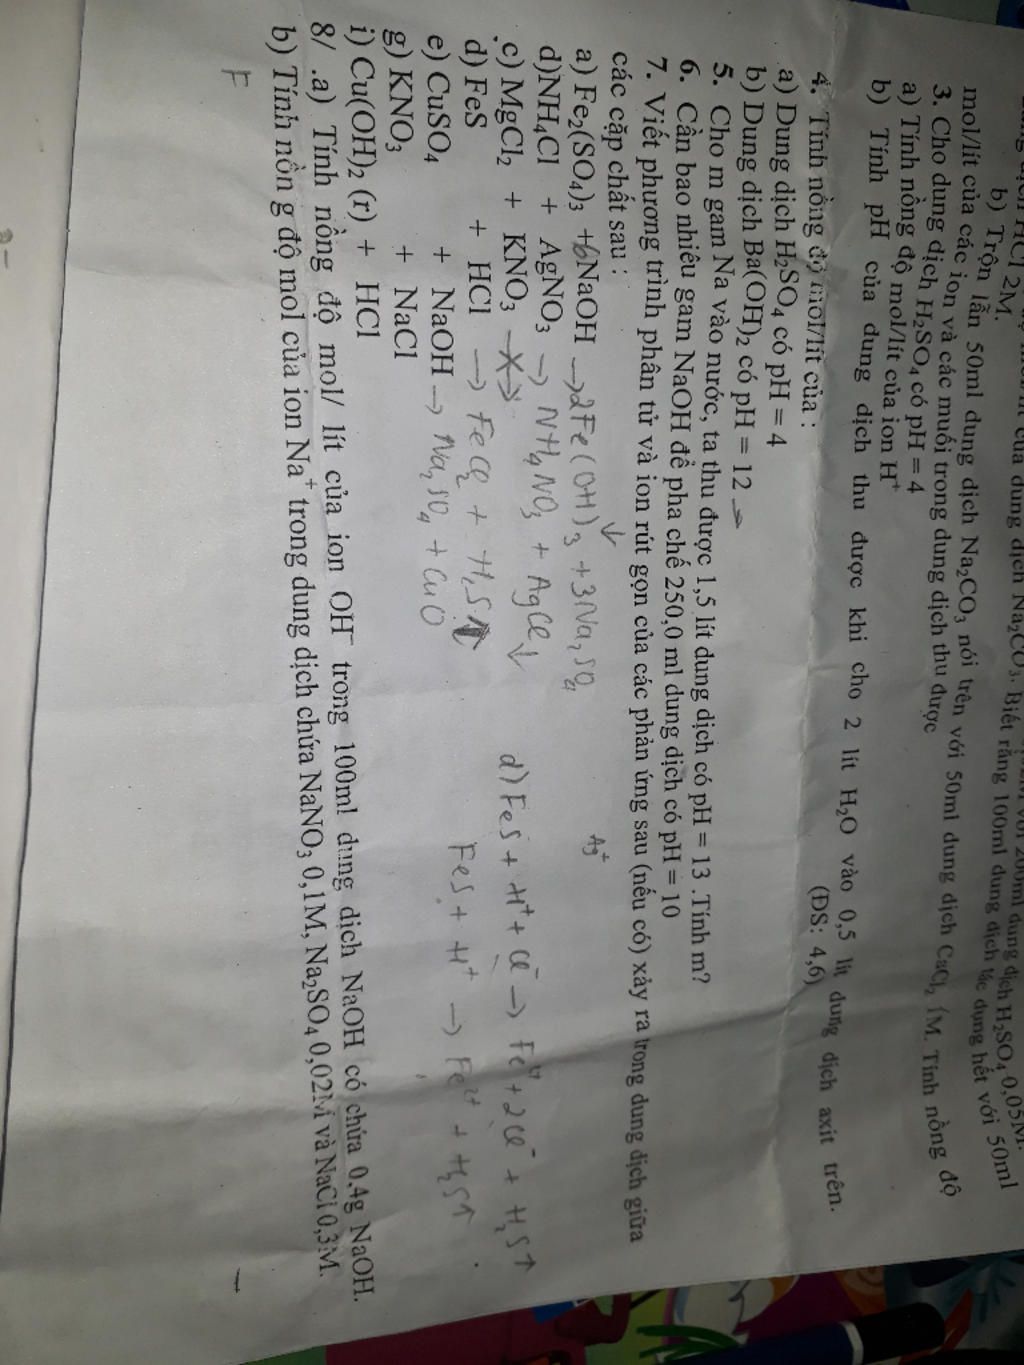 của dung dịch Na₂CO₃. Biết rằng 100ml dung dịch tác dụng hết với 50ml
HCl 2M.
b) Trộn lẫn 50ml dung dịch Na₂CO₃ nói trên với 50ml dung dịch CaCl₂ 1M. Tính nồng độ
mol/lít của các ion và các muối trong dung dịch thu được
3. Cho dung dịch H₂SO₄ có pH = 4
a) Tính nồng độ mol/lít của ion H⁺
b) Tính pH của dung dịch thu được khi cho 2 lít H₂O vào 0,5 lít dung dịch axit trên.
(ĐS: 4,6)
4. Tính nồng độ mol/lít của :
a) Dung dịch H₂SO₄ có pH = 4
b) Dung dịch Ba(OH)₂ có pH = 12
5. Cho m gam Na vào nước, ta thu được 1,5 lít dung dịch có pH = 13 .Tính m?
6. Cần bao nhiêu gam NaOH để pha chế 250,0 ml dung dịch có pH = 10
7. Viết phương trình phân tử và ion rút gọn của các phản ứng sau (nếu có) xảy ra trong dung dịch giữa
các cặp chất sau :
a) Fe₂(SO₄)₃ + 6NaOH → 2Fe(OH)₃↓ + 3Na₂SO₄
Ag⁺
d)NH₄Cl + AgNO₃ → NH₄NO₃ + AgCl↓
c) MgCl₂ + KNO₃
d) FeS + HCl → FeCl₂ + H₂S↑
d) FeS + H⁺ + Cl⁻ → Fe²⁺ + 2Cl⁻ + H₂S↑
FeS + H⁺ → Fe²⁺ + H₂S↑
e) CuSO₄ + NaOH → Na₂SO₄ + CuO
g) KNO₃ + NaCl
i) Cu(OH)₂ (r) + HCl
8/ .a) Tính nồng độ mol/ lít của ion OH⁻ trong 100ml dung dịch NaOH có chứa 0,4g NaOH.
b) Tính nồn g độ mol của ion Na⁺ trong dung dịch chứa NaNO₃ 0,1M, Na₂SO₄ 0,02M và NaCl 0,3M.
F